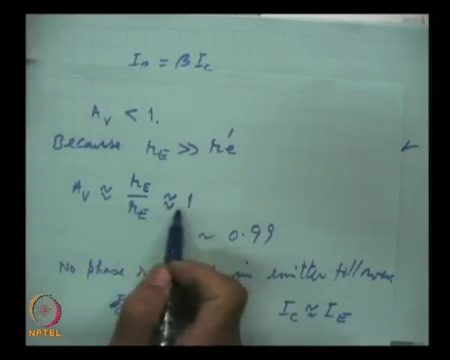 In = β Ic
Av < 1.
Because rE >> r'e
Av ≈ rE/rE ≈ 1
~ 0.99
No phase in emitter follower
Ic ≈ IE
NPTEL